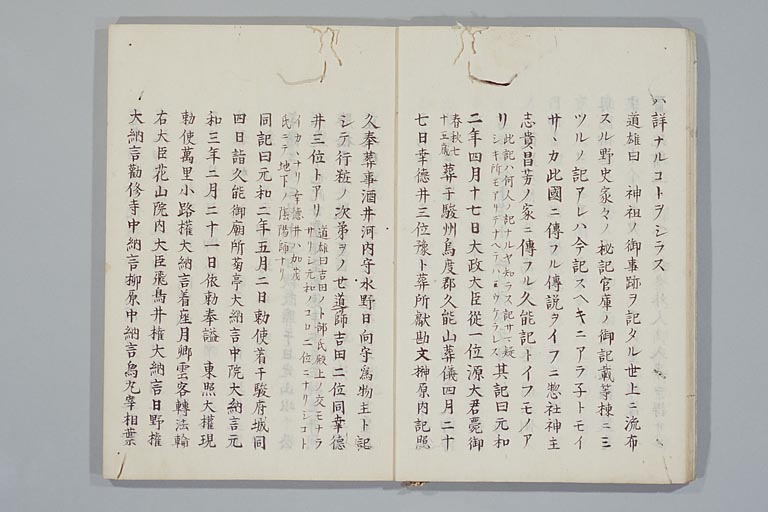 詳ナルコトヲシラス
道雄曰 神祖ノ御事跡ヲ記タル世上ニ流布
スル野史家々ノ秘記官庫ノ御記載等棟ニミ
ツルノ記アレハ今記スヘキニアラ子トモイ
サヽカ此國ニ傳フル傳説ヲイフニ惣社神主
志貴昌芳ノ家ニ傳フル久能記トイフモノア
リ此記ハ何人ノ記ナルヤ知ラス記サマ疑
シキ所モアリテナヘテハウケラレス其記曰元和
二年四月十七日大政大臣從一位源大君薨御
春秋七
十五歳葬于駿州烏度郡久能山葬儀四月二十
七日幸德井三位豫ト葬所獻勘文榊原内記照
久奉葬事酒井河内守水野日向守爲物主ト記
シテ行粧ノ次第ヲノセ導師吉田二位同幸德
井三位トアリ道雄曰吉田ノト部氏殿上ノ交モナラ
サリシ元和ノコロ二位ニナリシコト
イカヽナリ幸德井ハ加茂
氏ニテ地下ノ陰陽師ナリ
同記曰元和二年五月二日勅使着于駿府城同
四日詣久能御廟所菊亭大納言中院大納言元
和三年二月二十一日依勅奉謚 東照大權現
勅使萬里小路權大納言着座月卿雲客轉法輪
右大臣花山院内大臣飛鳥井權大納言日野權
大納言勸修寺中納言柳原中納言烏丸宰相葉